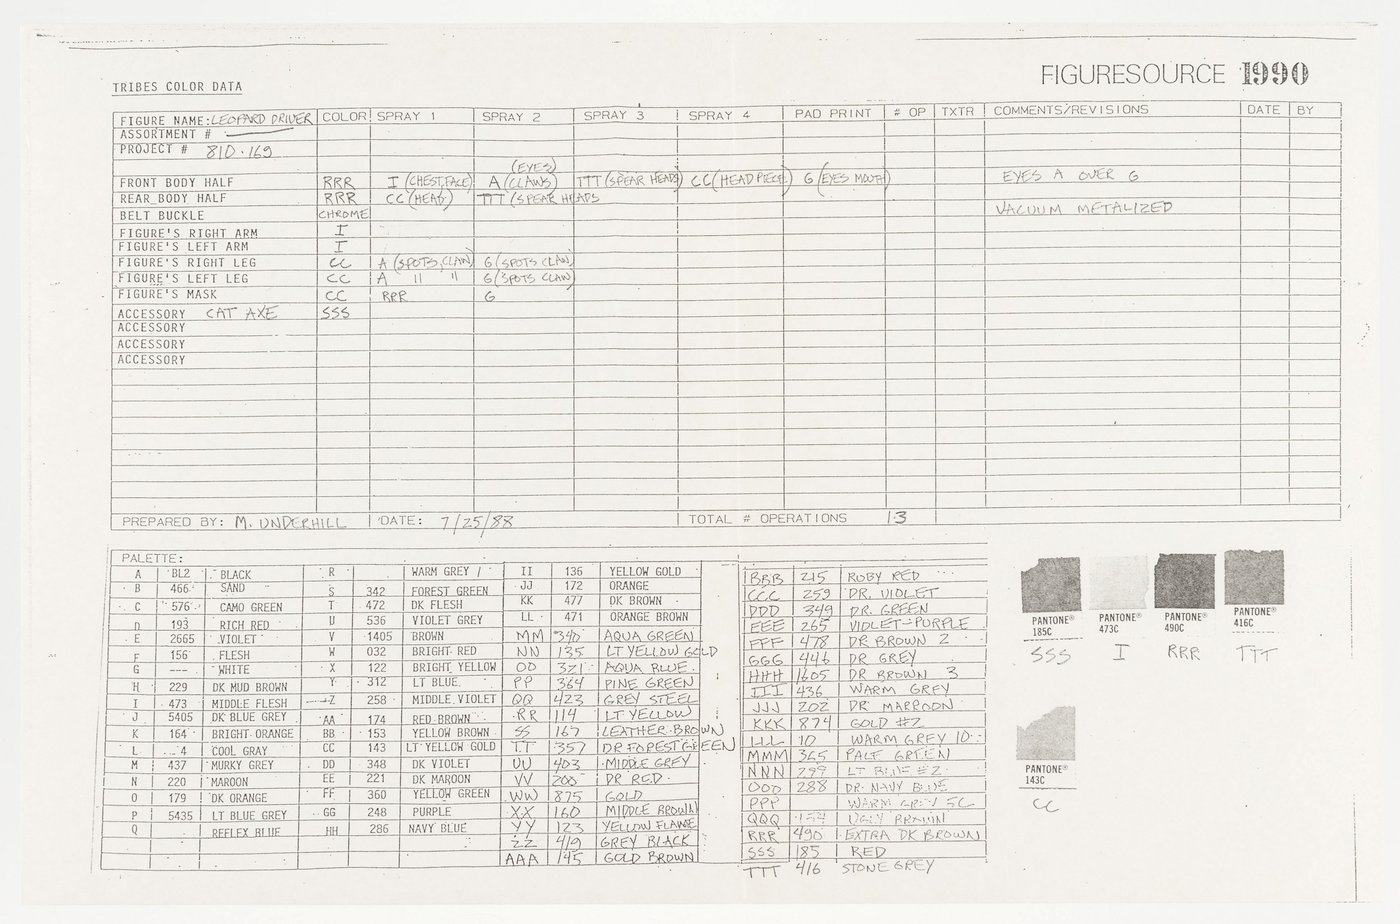 FIGURESOURCE 1990
TRIBES COLOR DATA
FIGURE NAME: LEOPARD DRIVER COLOR SPRAY 1 SPRAY 2 SPRAY 3 SPRAY 4 PAD PRINT # OP TXTR COMMENTS/REVISIONS DATE BY
ASSORTMENT #
PROJECT # 810.169
(EYES)
FRONT BODY HALF RRR I (CHEST, FACE) A (CLAWS) TTT (SPEAR HEADS) CC (HEAD PIECE) G (EYES MOUTH) EYES A OVER G
REAR BODY HALF RRR CC (HEAD) TTT (SPEAR HEADS
BELT BUCKLE CHROME VACUUM METALIZED
FIGURE'S RIGHT ARM I
FIGURE'S LEFT ARM I
FIGURE'S RIGHT LEG CC A (SPOTS, CLAW) G (SPOTS CLAW)
FIGURE'S LEFT LEG CC A " " G (SPOTS CLAW)
FIGURE'S MASK CC RRR G
ACCESSORY CAT AXE SSS
ACCESSORY
ACCESSORY
ACCESSORY
PREPARED BY: M. UNDERHILL DATE: 7/25/88 TOTAL # OPERATIONS 13
PALETTE:
A BL2 BLACK R WARM GREY 1 II 136 YELLOW GOLD BBB 215 RUBY RED
B 466 SAND S 342 FOREST GREEN JJ 172 ORANGE CCC 259 DR. VIOLET
C 576 CAMO GREEN T 472 DK FLESH KK 477 DK BROWN DDD 349 DR. GREEN
D 193 RICH RED U 536 VIOLET GREY LL 471 ORANGE BROWN EEE 265 VIOLET-PURPLE
E 2665 VIOLET V 1405 BROWN MM 340 AQUA GREEN FFF 478 DR BROWN 2
F 156 FLESH W 032 BRIGHT RED NN 135 LT YELLOW GOLD GGG 446 DR GREY
G --- WHITE X 122 BRIGHT YELLOW OO 321 AQUA BLUE HHH 1605 DR BROWN 3
H 229 DK MUD BROWN Y 312 LT BLUE PP 364 PINE GREEN III 436 WARM GREY
I 473 MIDDLE FLESH Z 258 MIDDLE VIOLET QQ 423 GREY STEEL JJJ 202 DR MARROON
J 5405 DK BLUE GREY AA 174 RED BROWN RR 114 LT YELLOW KKK 874 GOLD #2
K 164 BRIGHT ORANGE BB 153 YELLOW BROWN SS 167 LEATHER BROWN LLL 10 WARM GREY 10
L 4 COOL GRAY CC 143 LT YELLOW GOLD TT 357 DR FOREST GREEN MMM 365 PALE GREEN
M 437 MURKY GREY DD 348 DK VIOLET UU 403 MIDDLE GREY NNN 299 LT BLUE #2
N 220 MAROON EE 221 DK MAROON VV 200 DR RED OOO 288 DR. NAVY BLUE
O 179 DK ORANGE FF 360 YELLOW GREEN WW 875 GOLD PPP WARM GREY 5C
P 5435 LT BLUE GREY GG 248 PURPLE XX 160 MIDDLE BROWN QQQ 154 UGLY BROWN
Q REFLEX BLUE HH 286 NAVY BLUE YY 123 YELLOW FLAME RRR 490 EXTRA DK BROWN
ZZ 419 GREY BLACK SSS 185 RED
AAA 145 GOLD BROWN TTT 416 STONE GREY
PANTONE® 185C PANTONE® 473C PANTONE® 490C PANTONE® 416C
SSS I RRR TTT
PANTONE® 143C
CC